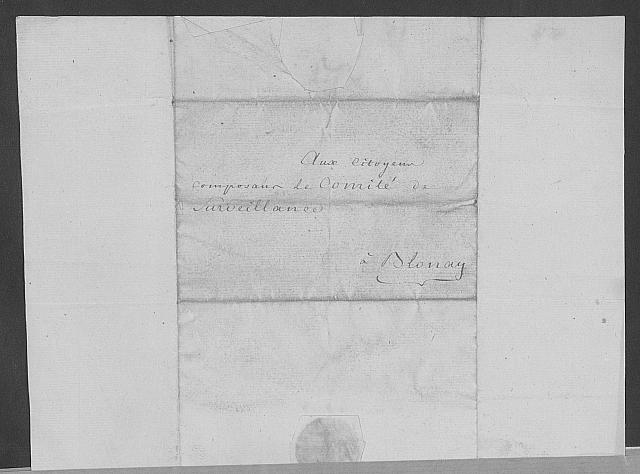 Aux Citoyens
composans le Comité de
Surveillance
à Blonay